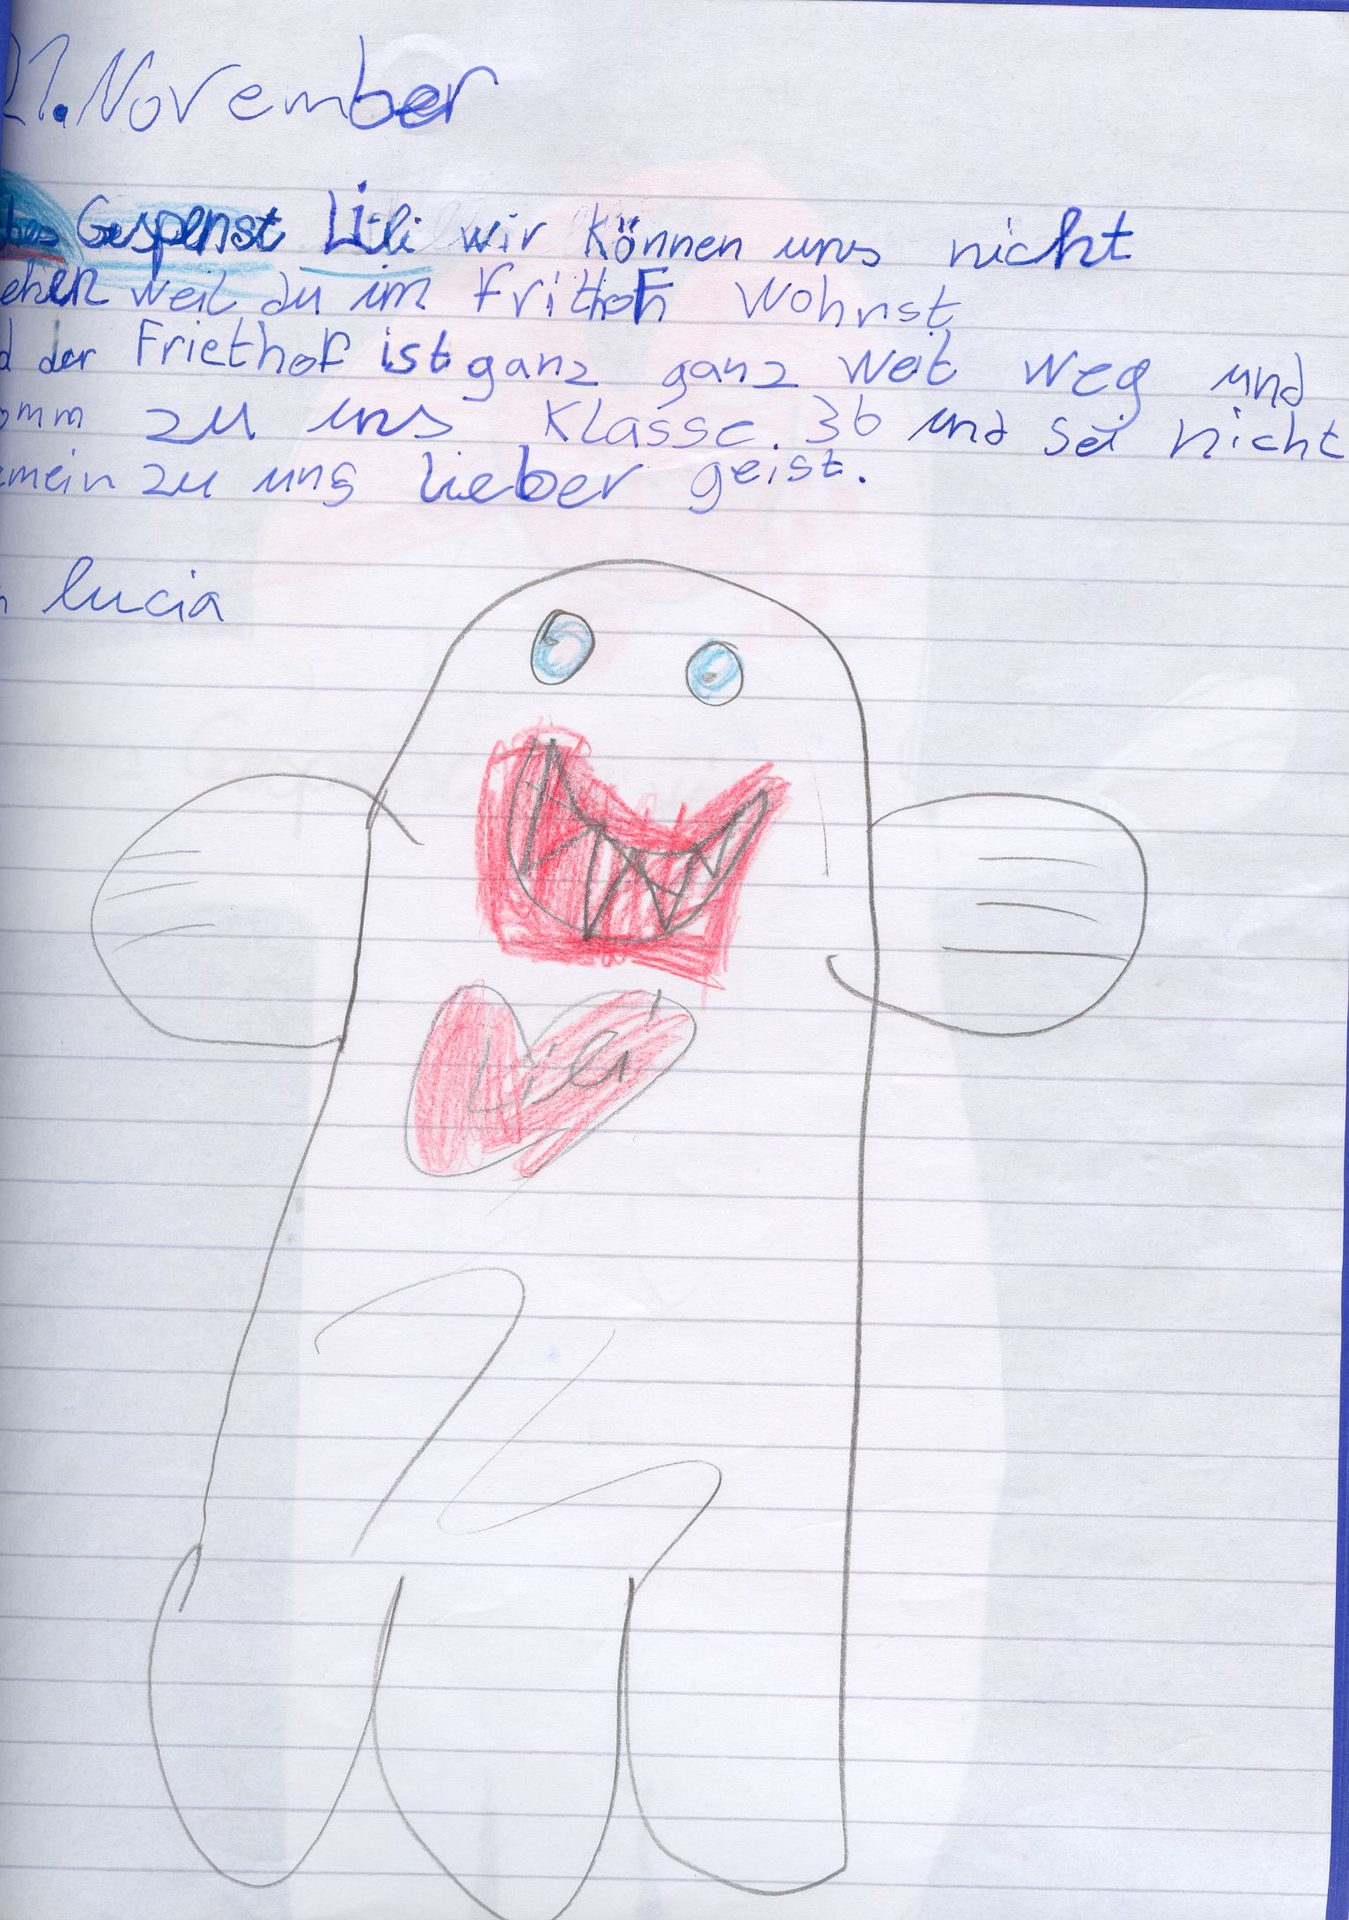 21. November
bes Gespenst Lili wir können uns nicht
ehen weil du im frithoF wohnst
d der Friethof ist ganz ganz weit weg und
omm zu uns Klasse. 3b und sei nicht
mein zu uns lieber geist.
n lucia
Lili